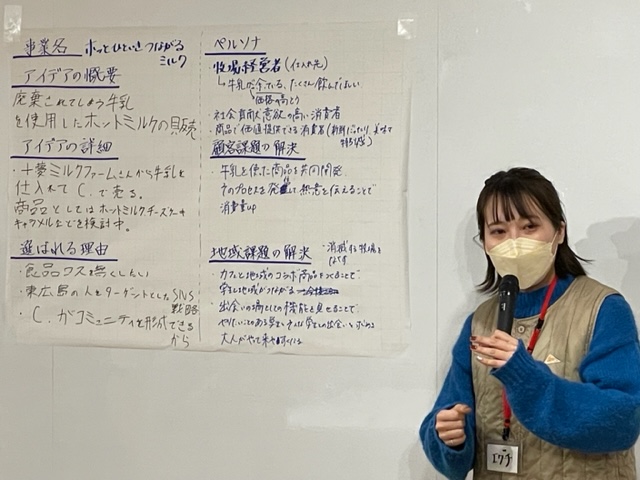 事業名 ホッとひといきつながる
ミルク
アイデアの概要
廃棄されてしまう牛乳
を使用したホットミルクの販売
アイデアの詳細
ミルクファームさんから牛乳を
仕入れて C. で売る。
商品としてはホットミルクチーズケーキ
キャラメルなどを検討中。
選ばれる理由
・食品ロスを無くしたい
・東広島の人をターゲットとしたSNS
戦略
・C. がコミュニティを形成できる
から
ペルソナ
牧場経営者(仕入れ先)
↳牛乳が余っている、たくさん飲んでほしい
・社会貢献意欲の高い消費者
・商品で価値提供できる消費者
顧客課題の解決
・牛乳を使た商品を共同開発
そのプロセスを発信して熱意を伝えることで
消費量up
地域課題の解決
・消滅する牧場を
なくす
・カフェと地域のコラボ商品をつくることで
学生と地域がつながる
・出会いの場としての機能を見せることで
やりたいことのある学生やそんな学生との出会いを求める
大人がやって来やすくなる
エグチ